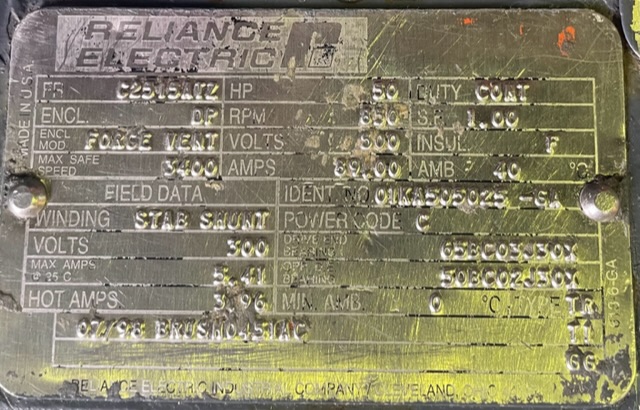 RELIANCE
ELECTRIC
MADE IN U.S.A.
FR HP 50 DUTY CONT
ENCL. DP RPM 850 S.F. 1.00
ENCL MOD. FORCE VENT VOLTS 500 INSUL. F
MAX SAFE SPEED 3400 AMPS 89.00 AMB 40 °C
FIELD DATA IDENT. NO. 01KA505025 -GA
WINDING STAB SHUNT POWER CODE C
VOLTS 300 DRIVE END BEARING 65BC03J30X
MAX AMPS @ 25 C 5.41 BEARING 50BC02J30X
HOT AMPS 3.96 MIN. AMB. 0 °C TYPE TR
07/98
GG
RELIANCE ELECTRIC INDUSTRIAL COMPANY CLEVELAND, OHIO